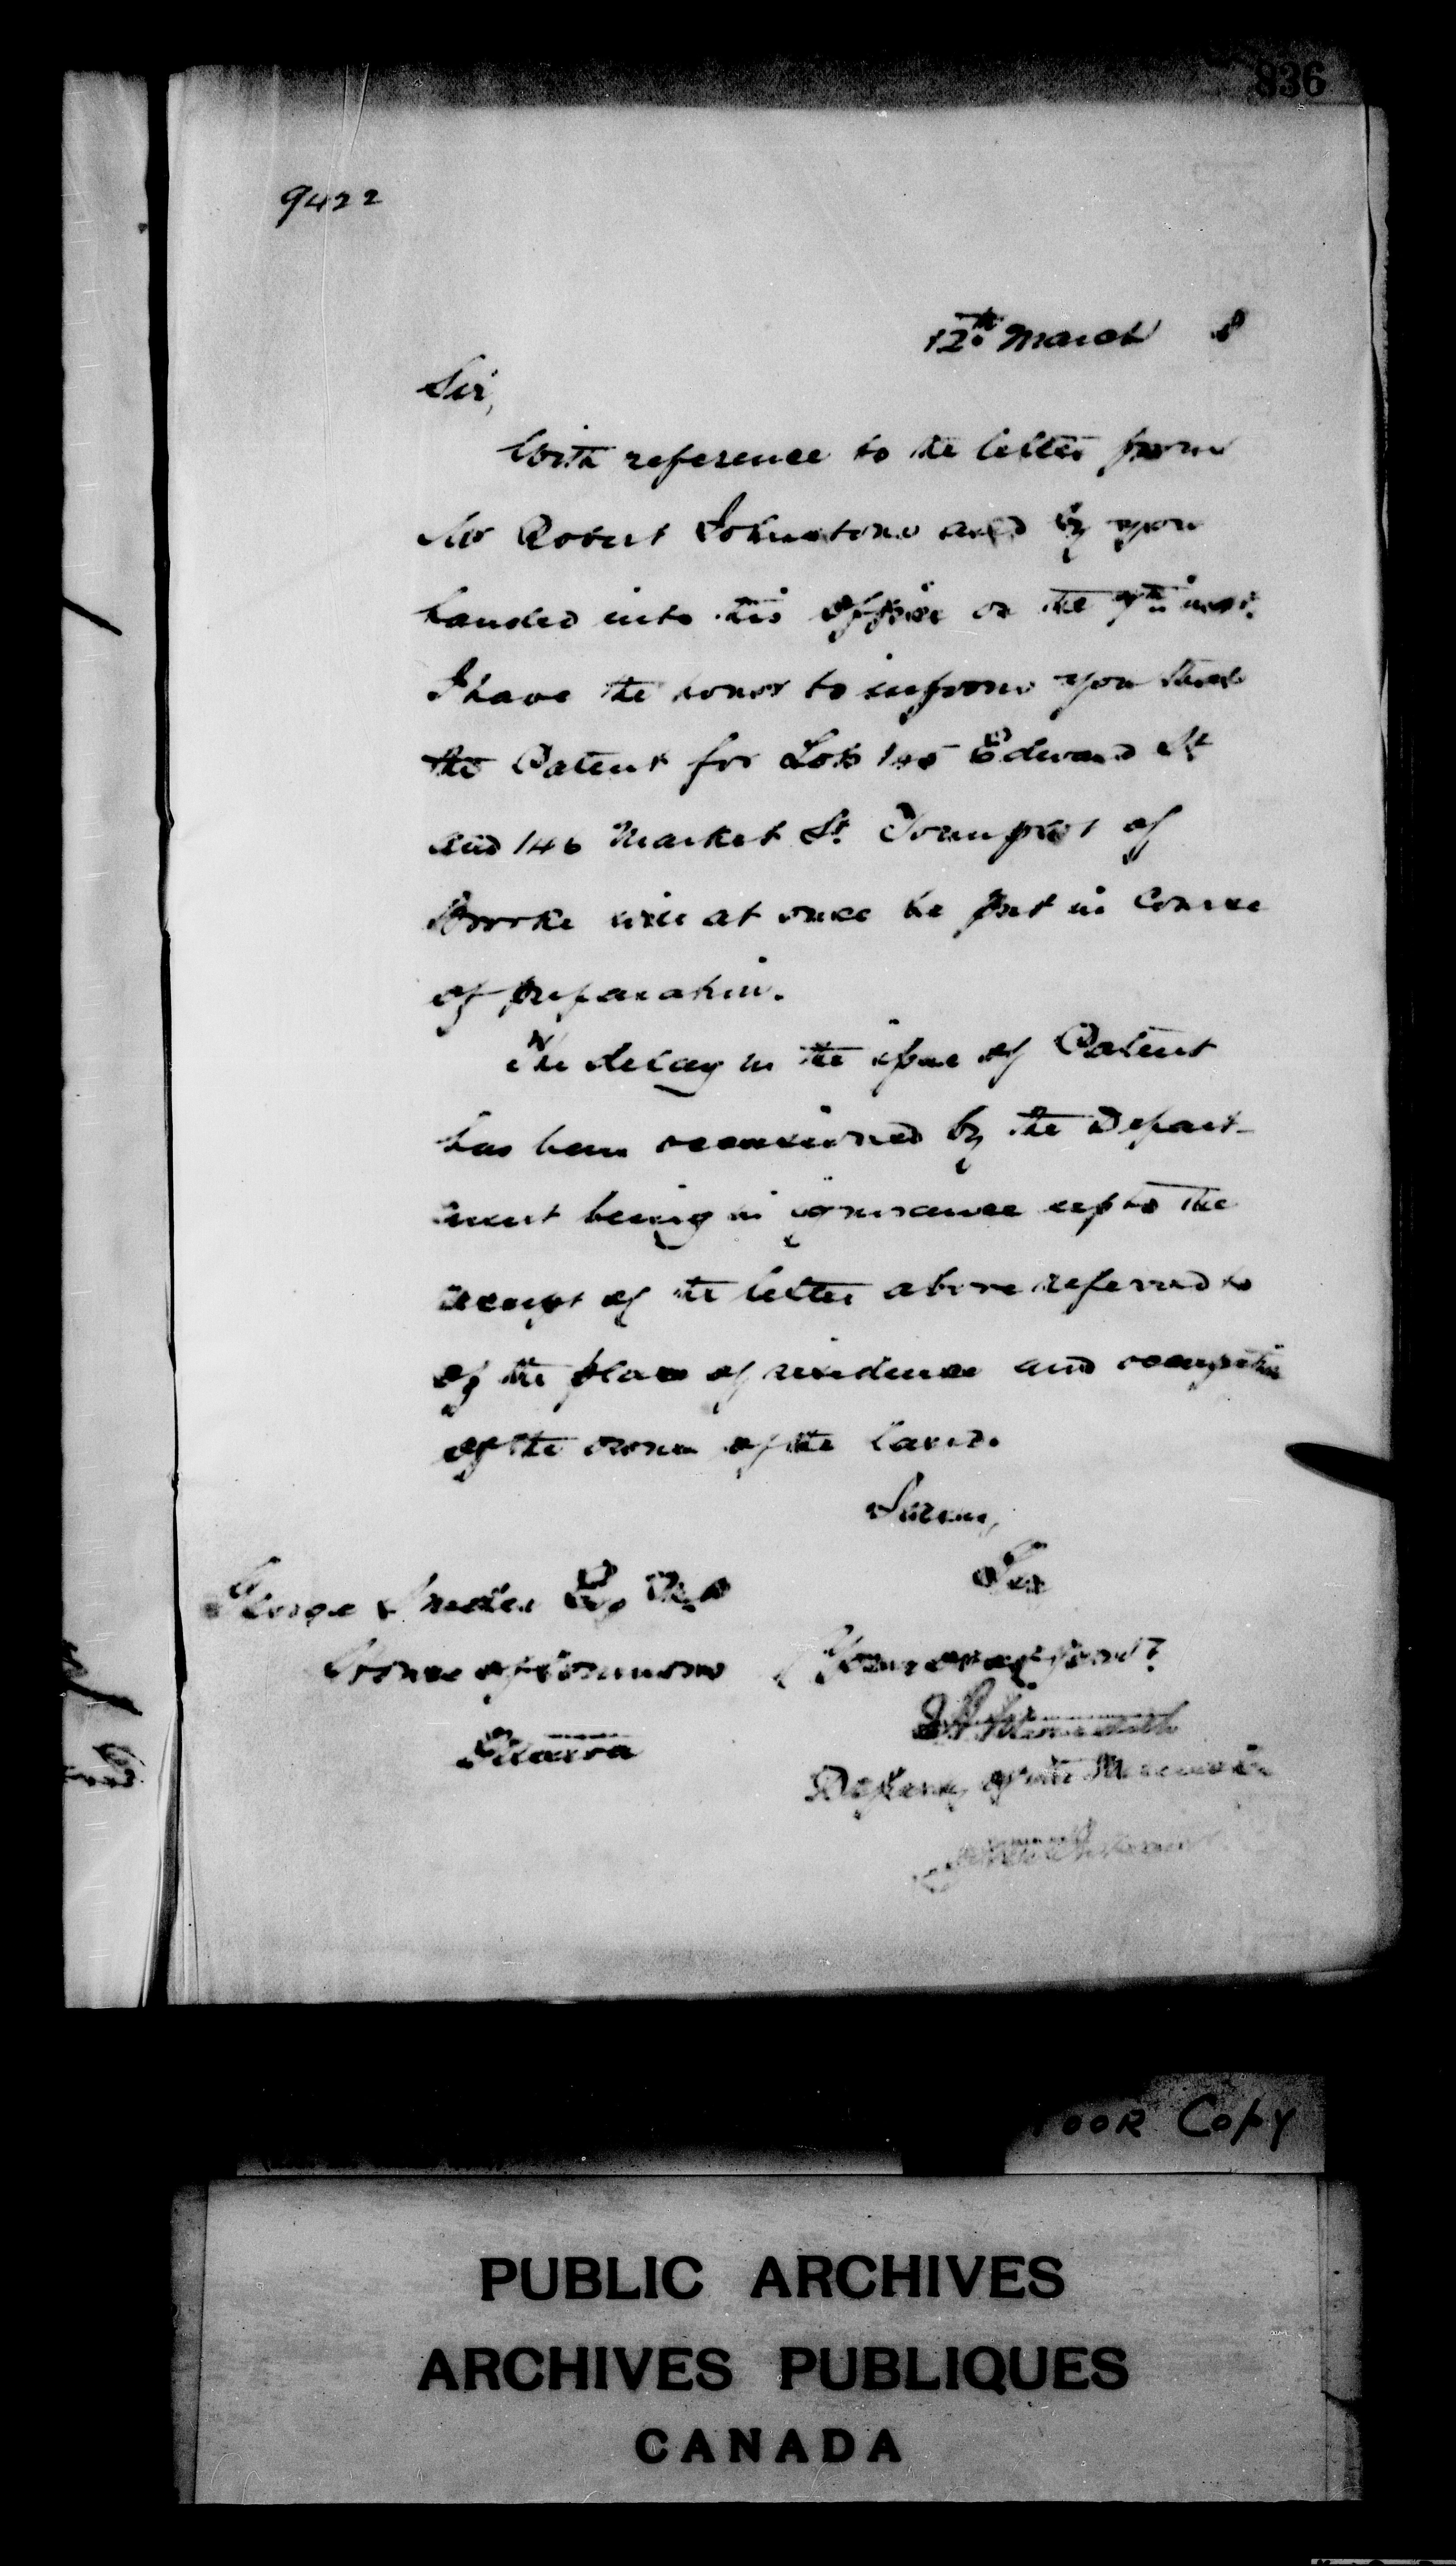 836
9422
12th March 8
Sir,
With reference to the letter from
Mr Robert Johnstone and by you
handed into this office on the 9th inst.
I have the honor to inform you that
the Patent for Lots 145 Edward St
and 146 Market St. Town plot of
will at once be put in course
of preparation.
The delay in the issue of Patent
has been occasioned by the Depart-
ment being in ignorance up to the
receipt of the letter above referred to
of the place of residence and occupation
of the owner of the land.
I am,
Sir
George Esq M.P.
House of Commons
Your
Ottawa
Deputy of the Minister
Copy
PUBLIC ARCHIVES
ARCHIVES PUBLIQUES
CANADA